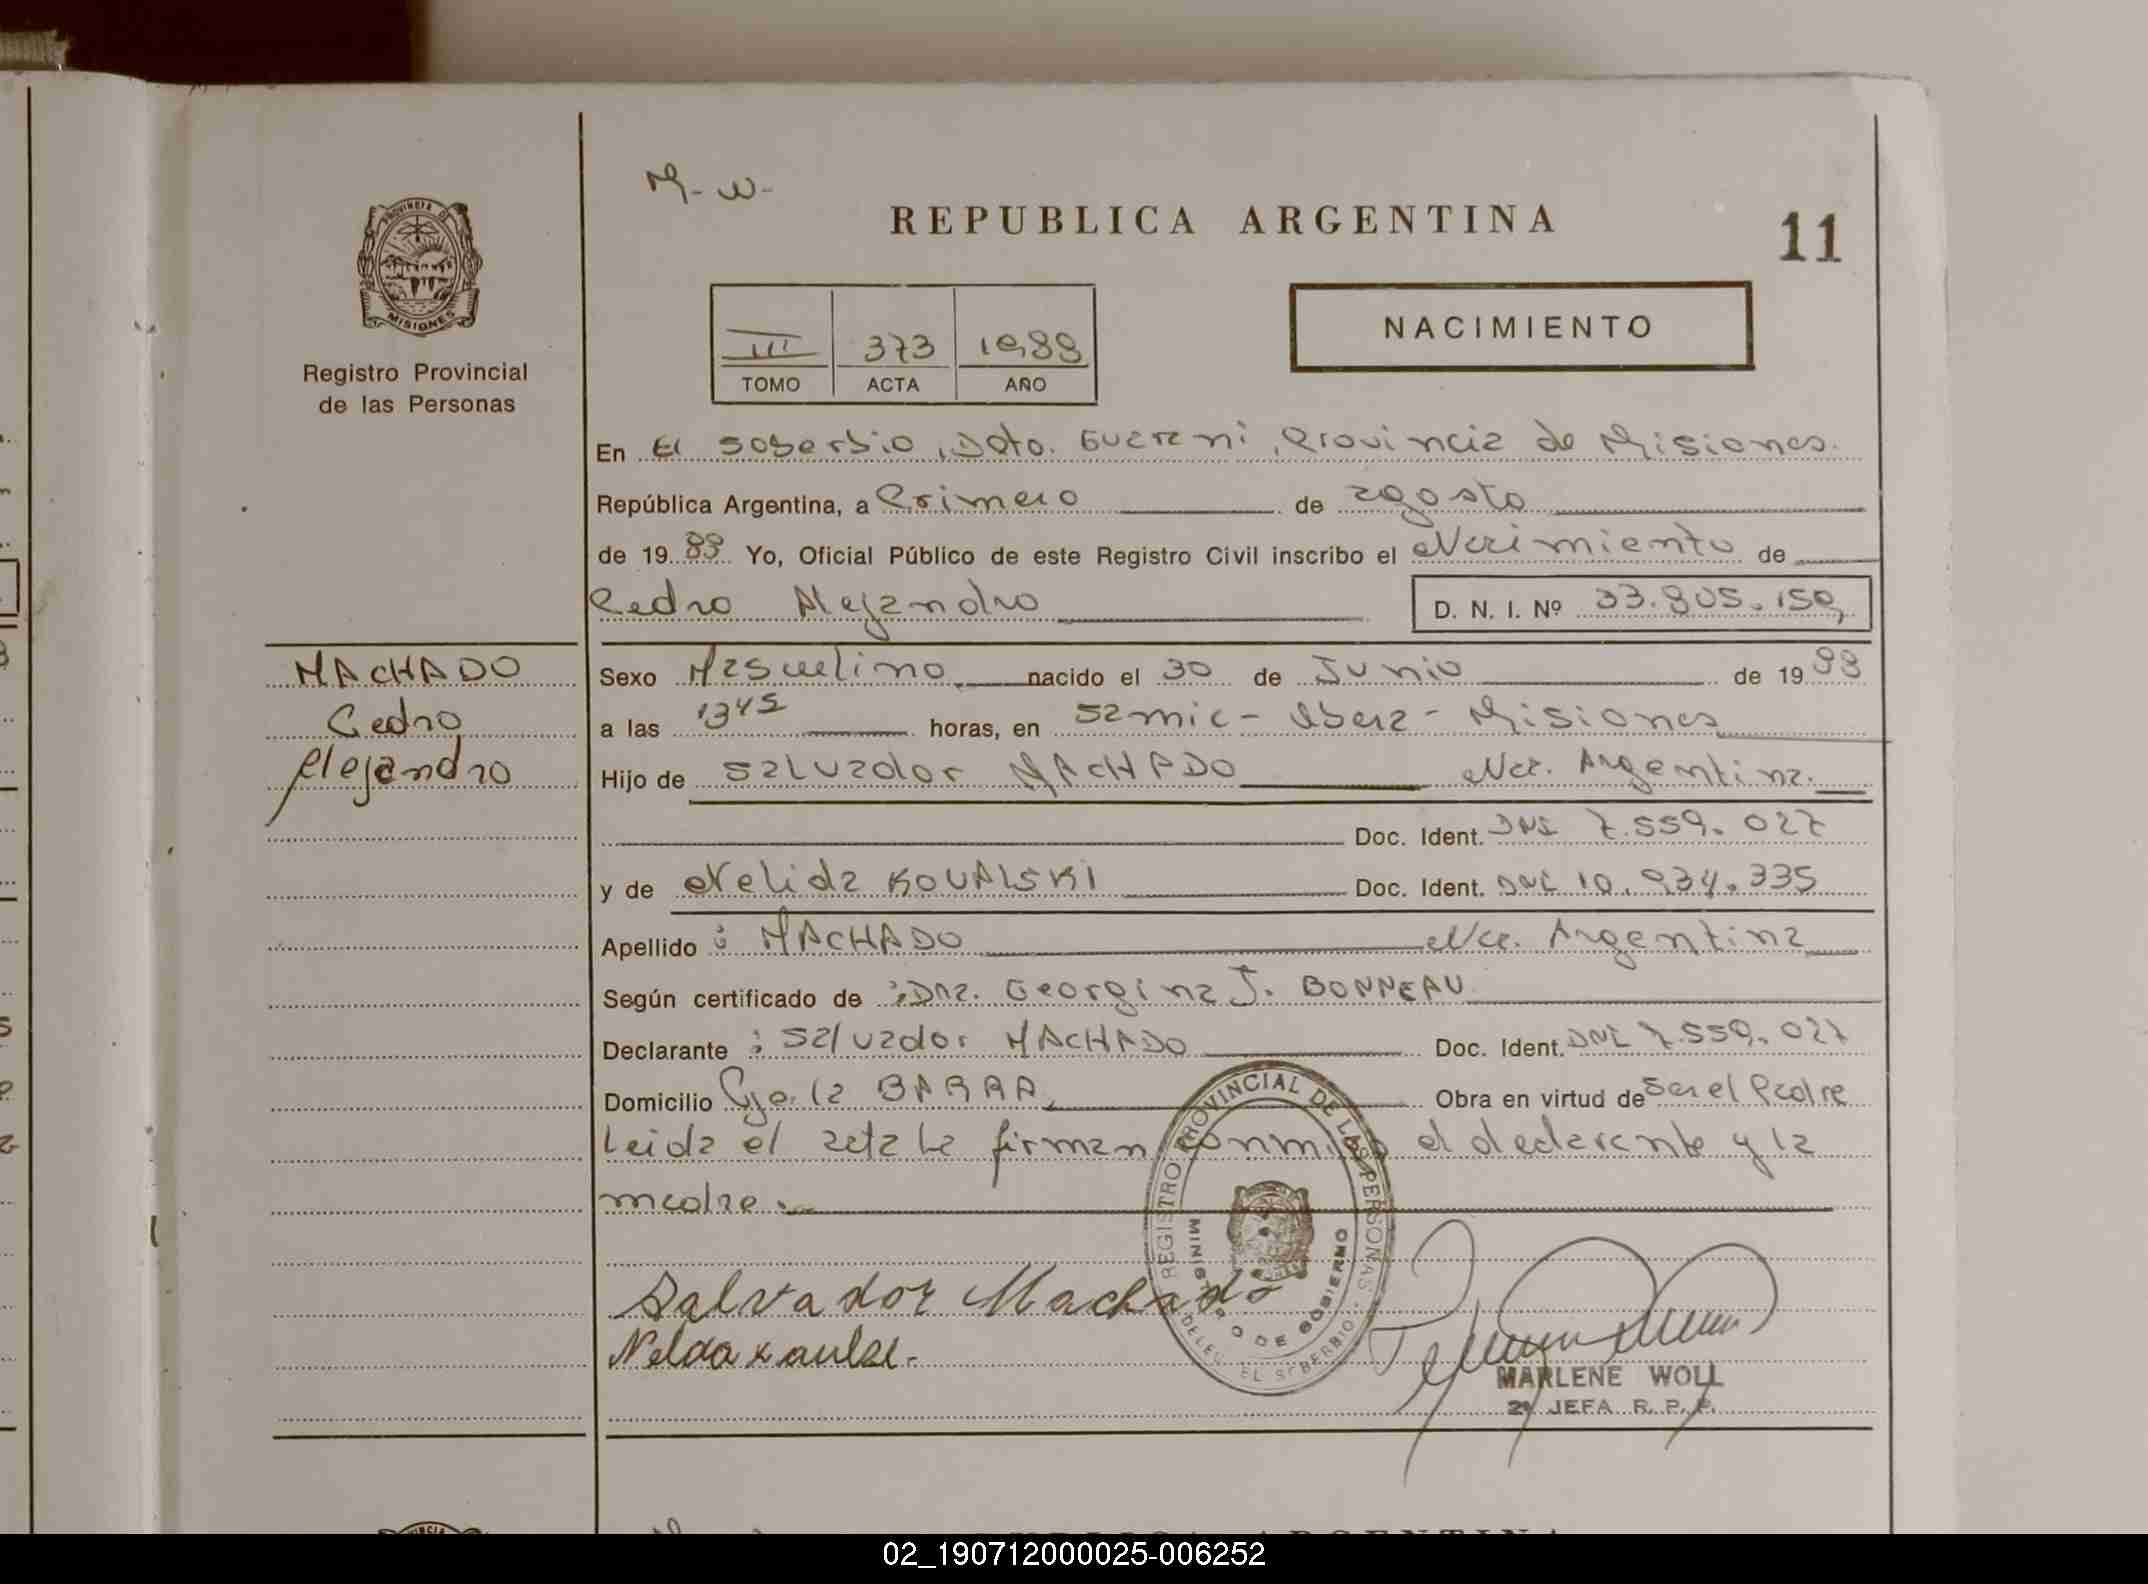 M-W-
REPUBLICA ARGENTINA
11
PROVINCIA DE
MISIONES
Registro Provincial
de las Personas
III 373 1988
TOMO ACTA AÑO
NACIMIENTO
En El Soberbio, Dpto. Guarani, Provincia de Misiones.
República Argentina, a Primero de agosto
de 19 88 Yo, Oficial Público de este Registro Civil inscribo el Nacimiento de
Pedro Alejandro D. N. I. Nº 33.805.150
MACHADO
Pedro
Alejandro
Sexo Masculino nacido el 30 de Junio de 19 88
a las 1345 horas, en Samic - Obera - Misiones
Hijo de Salvador MACHADO Nac. Argentina.
Doc. Ident. DNI 7.559.027
y de Nelida KOVALSKI Doc. Ident. DNI 10.934.335
Apellido : MACHADO Nac. Argentina
Según certificado de : Dra. Georgina J. BONNEAU
Declarante : Salvador MACHADO Doc. Ident. DNI 7.559.027
Domicilio la BARRA Obra en virtud de Ser el Padre
Leida el acta la firman conmigo el declarante y la
madre.
Salvador Machado
REGISTRO PROVINCIAL DE LAS PERSONAS
MINISTERIO DE GOBIERNO
EL SOBERBIO
MARLENE WOLL
JEFA R. P. P.
02_190712000025-006252